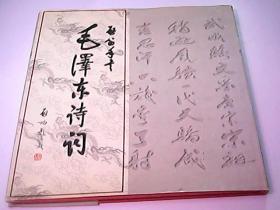 毛澤东诗词
略输文采唐宗宋祖
稍逊风骚一代天骄成
吉思汗只识弯弓射